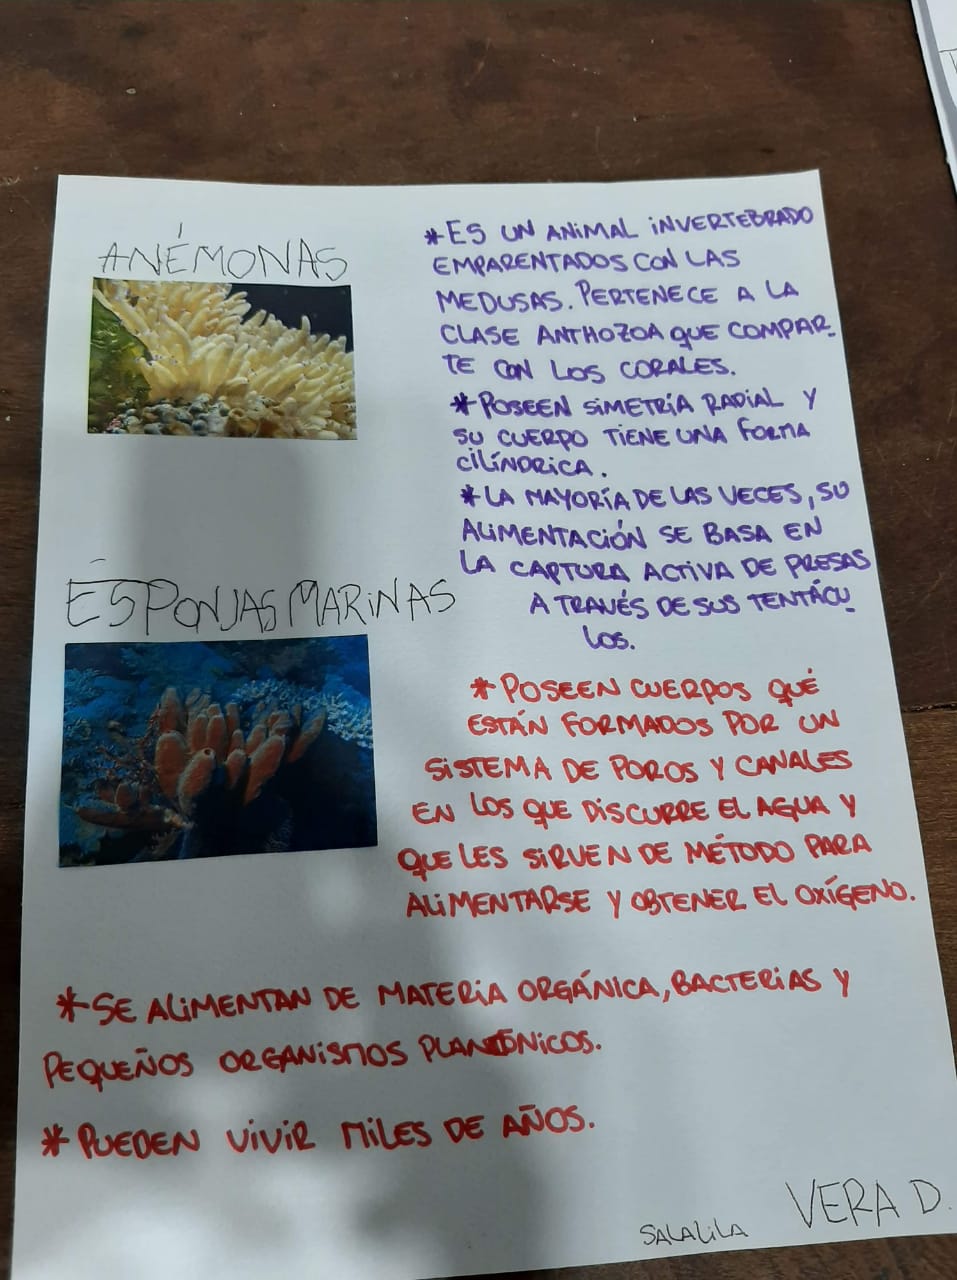 ANÉMONAS
*ES UN ANIMAL INVERTEBRADO
EMPARENTADOS CON LAS
MEDUSAS. PERTENECE A LA
CLASE ANTHOZOA QUE COMPAR-
TE CON LOS CORALES.
*POSEEN SIMETRÍA RADIAL Y
SU CUERPO TIENE UNA FORMA
CILÍNDRICA.
*LA MAYORÍA DE LAS VECES, SU
ALIMENTACIÓN SE BASA EN
LA CAPTURA ACTIVA DE PRESAS
A TRAVÉS DE SUS TENTÁCU
LOS.
ESPONJAS MARINAS
*POSEEN CUERPOS QUÉ
ESTÁN FORMADOS POR UN
SISTEMA DE POROS Y CANALES
EN LOS QUE DISCURRE EL AGUA Y
QUE LES SIRVEN DE MÉTODO PARA
ALIMENTARSE Y OBTENER EL OXÍGENO.
*SE ALIMENTAN DE MATERIA ORGÁNICA, BACTERIAS Y
PEQUEÑOS ORGANISMOS PLANCTÓNICOS.
*PUEDEN VIVIR MILES DE AÑOS.
SALALILA VERA D.